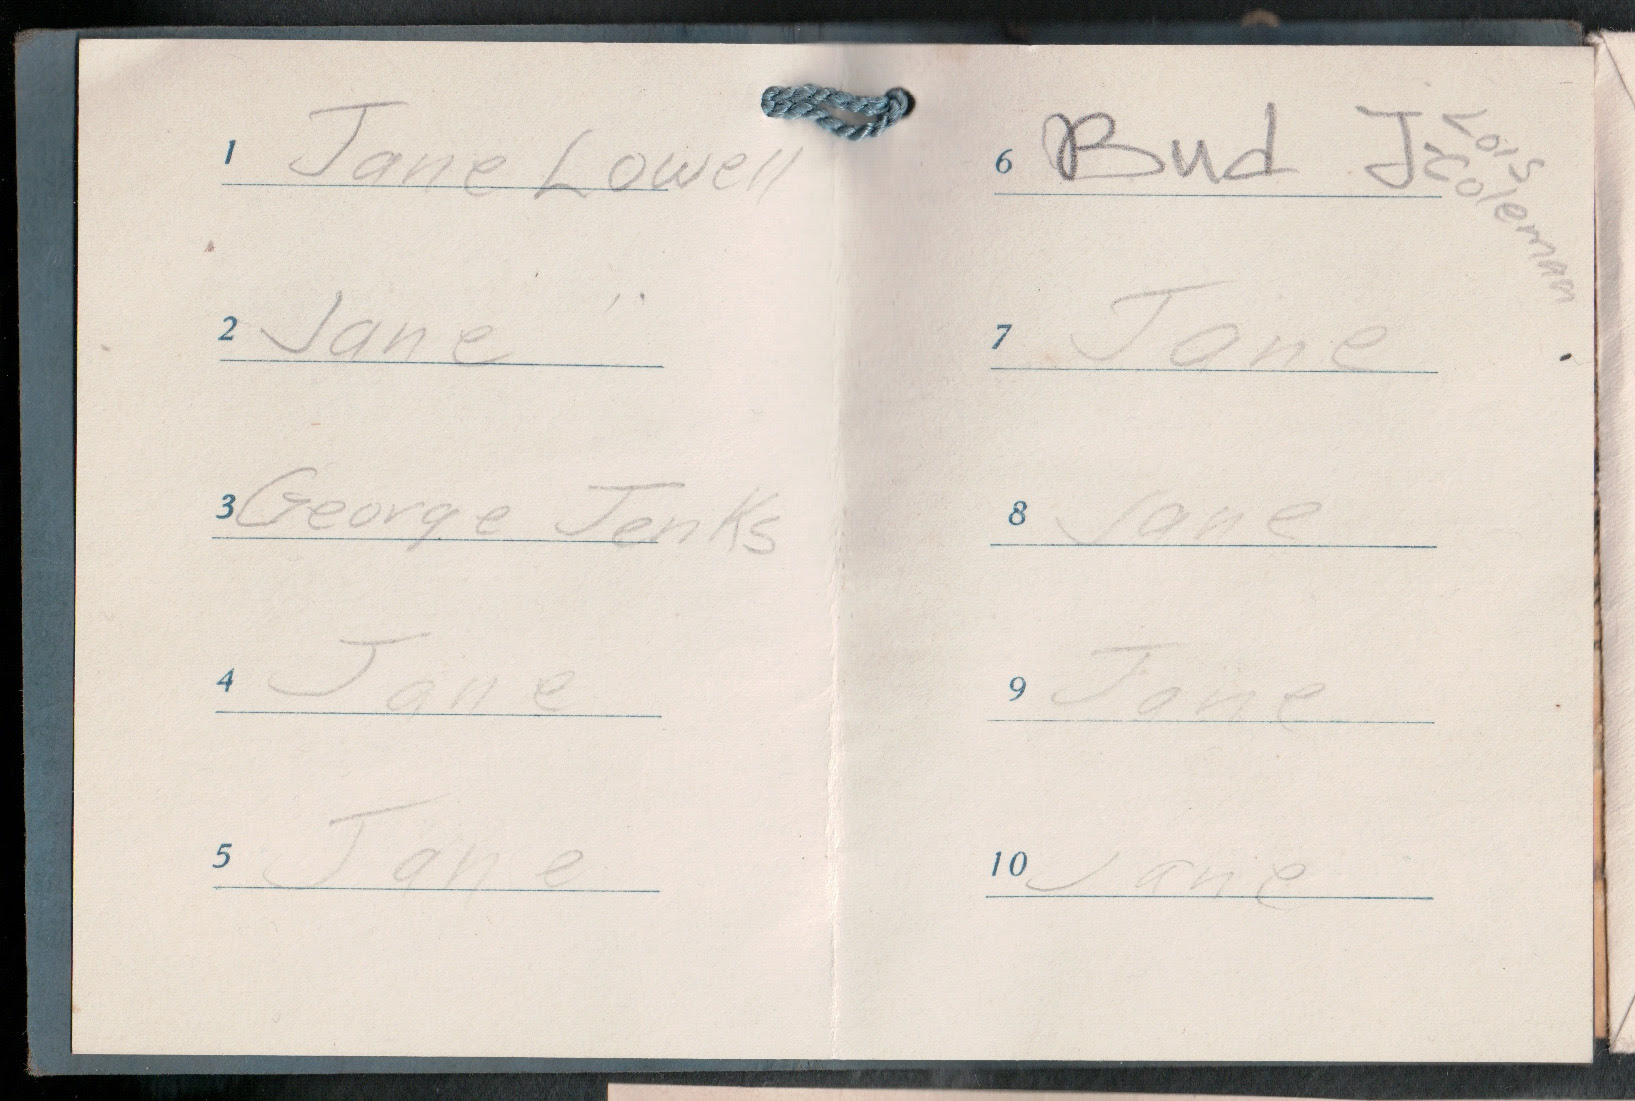 1 Jane Lowell
2 Jane "
3 George Jenks
4 Jane
5 Jane
6 Bud J
Lois
Coleman
7 Jane
8 Jane
9 Jane
10 Jane